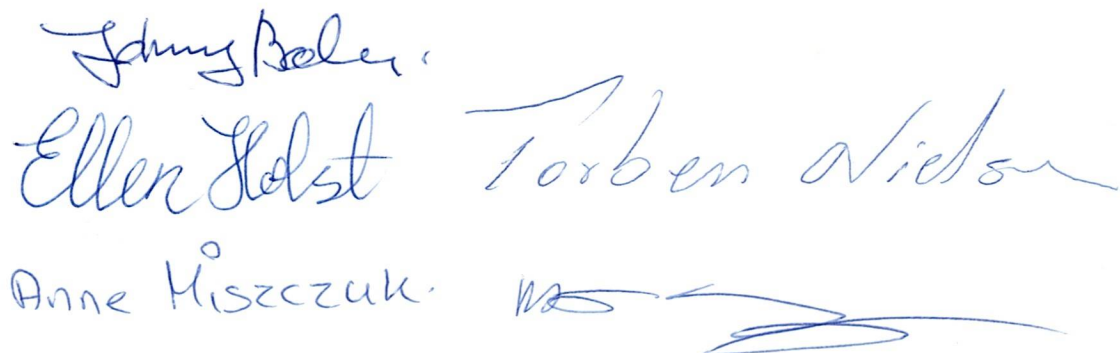 Johnny
Ellen Holst
Torben Nielsen
Anne Miszczuk.